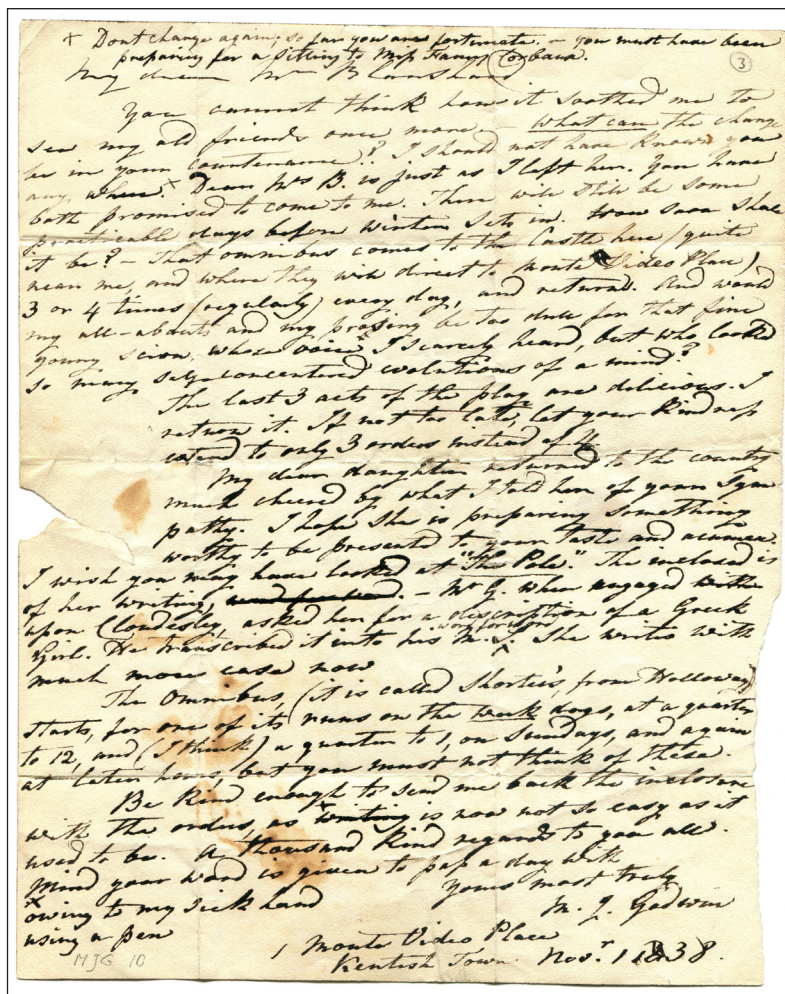 x Dont change again; so far you are fortunate. – you must have been
preparing for a sitting to Miss Fanny Corbaux.
3
My dear Mr B Cornwall
You cannot think how it soothed me to
see my old friends once more – What can the change
be in your countenance? I should not have known you
any where.x Dear Mrs B. is just as I left her. You have
both promised to come to me. There will still be some
practicable days before winter sets in. how soon shall
it be? – That omnibus comes to the Castle here (quite
near me, and where they will direct to Monte Video Place)
3 or 4 times (regularly) every day, and returns. And would
my all-abouts and my prosing be too dull for that fine
young scion, whose voice I scarcely heard, but who looked
so many self-concentered evolutions of a mind?
The last 3 acts of the play are delicious. I
return it. If not too late, let your kindness
extend to only 3 orders instead of 4
My dear daughter returned to the country
much cheered by what I told her of your sym
pathy. I hope she is preparing something
worthy to be presented to your taste and acumen.
I wish you may have looked at "The Pole". The inclosed is
of her writing, – Mr G. when engaged
upon Cloudesley, asked her for a description of a Greek
Girl. He transcribed it word for word into his M.S. She writes with
much more ease now
The Omnibus, (it is called Shorter's, from Holloway)
starts, for one of its runs on the week days, at a quarter
to 12, and (I think) a quarter to 1, on Sundays, and again
at later hours, but you must not think of these.
Be kind enough to send me back the inclosure
with the orders, as x writing is now not so easy as it
used to be. A thousand kind regards to you all.
Mind your word is given to pass a day with
Yours most truly
x owing to my sick hand
M. J. Godwin
using a pen
1 Monte Video Place
Kentish Town. Novr. 1 1838.
MJG 10